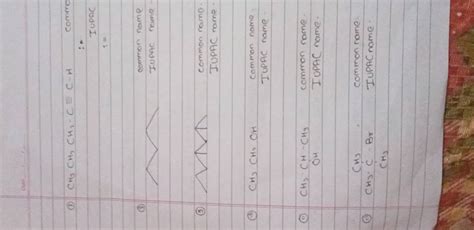 ① CH₃ CH₂ CH₂ - C ≡ C - H common
:- IUPAC
:-
common name
IUPAC name
common name.
IUPAC name.
CH₃ CH₂ OH common name.
IUPAC name.
⑪ CH₃ CH - CH₃ common name.
OH IUPAC name.
CH₃
CH₃ - C - Br common name
CH₃ IUPAC name.